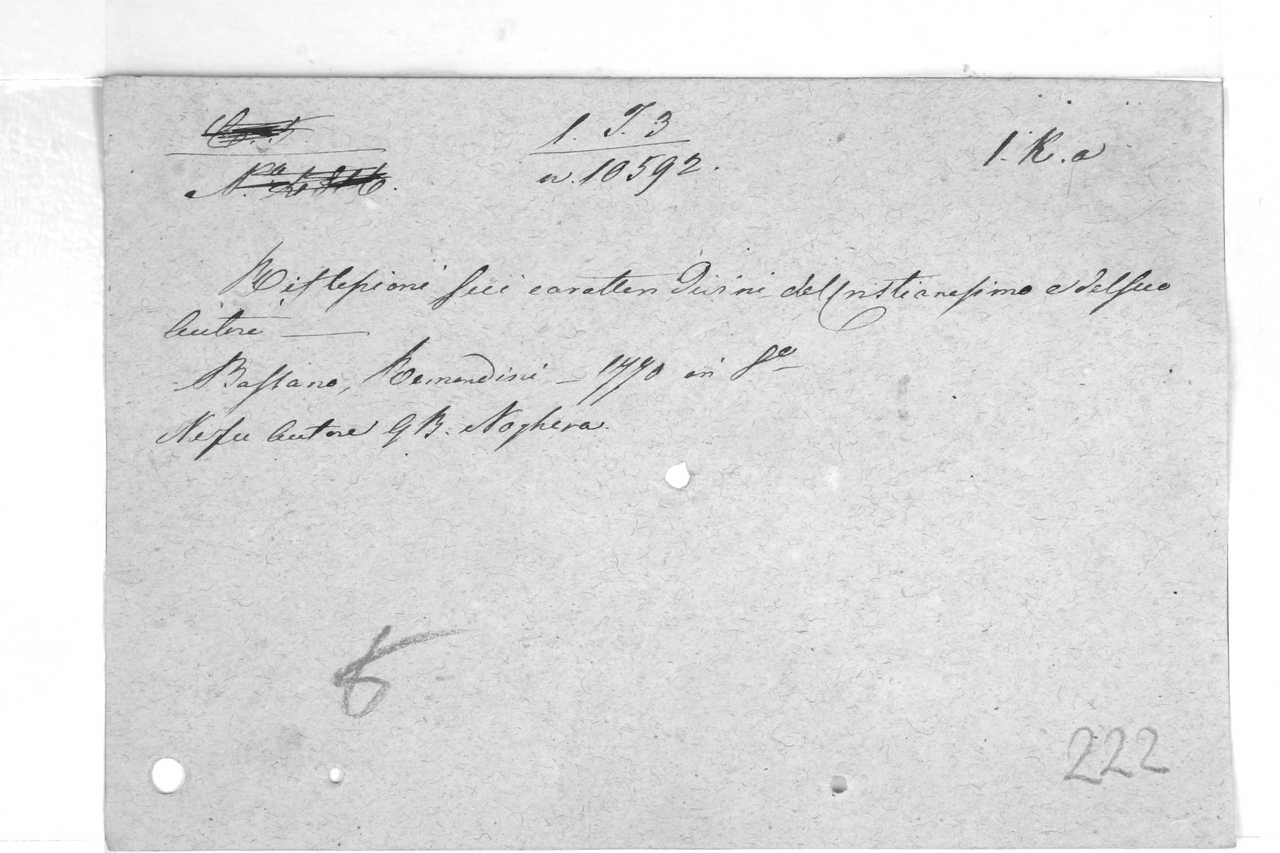 1. J. 3
n. 10592.
1. K. a
Riflessioni sui caratteri Divini del Cristianesimo e del suo
Autore —
Bassano, Remondini — 1770 in 8º
Ne fu autore G B. Noghera.
222